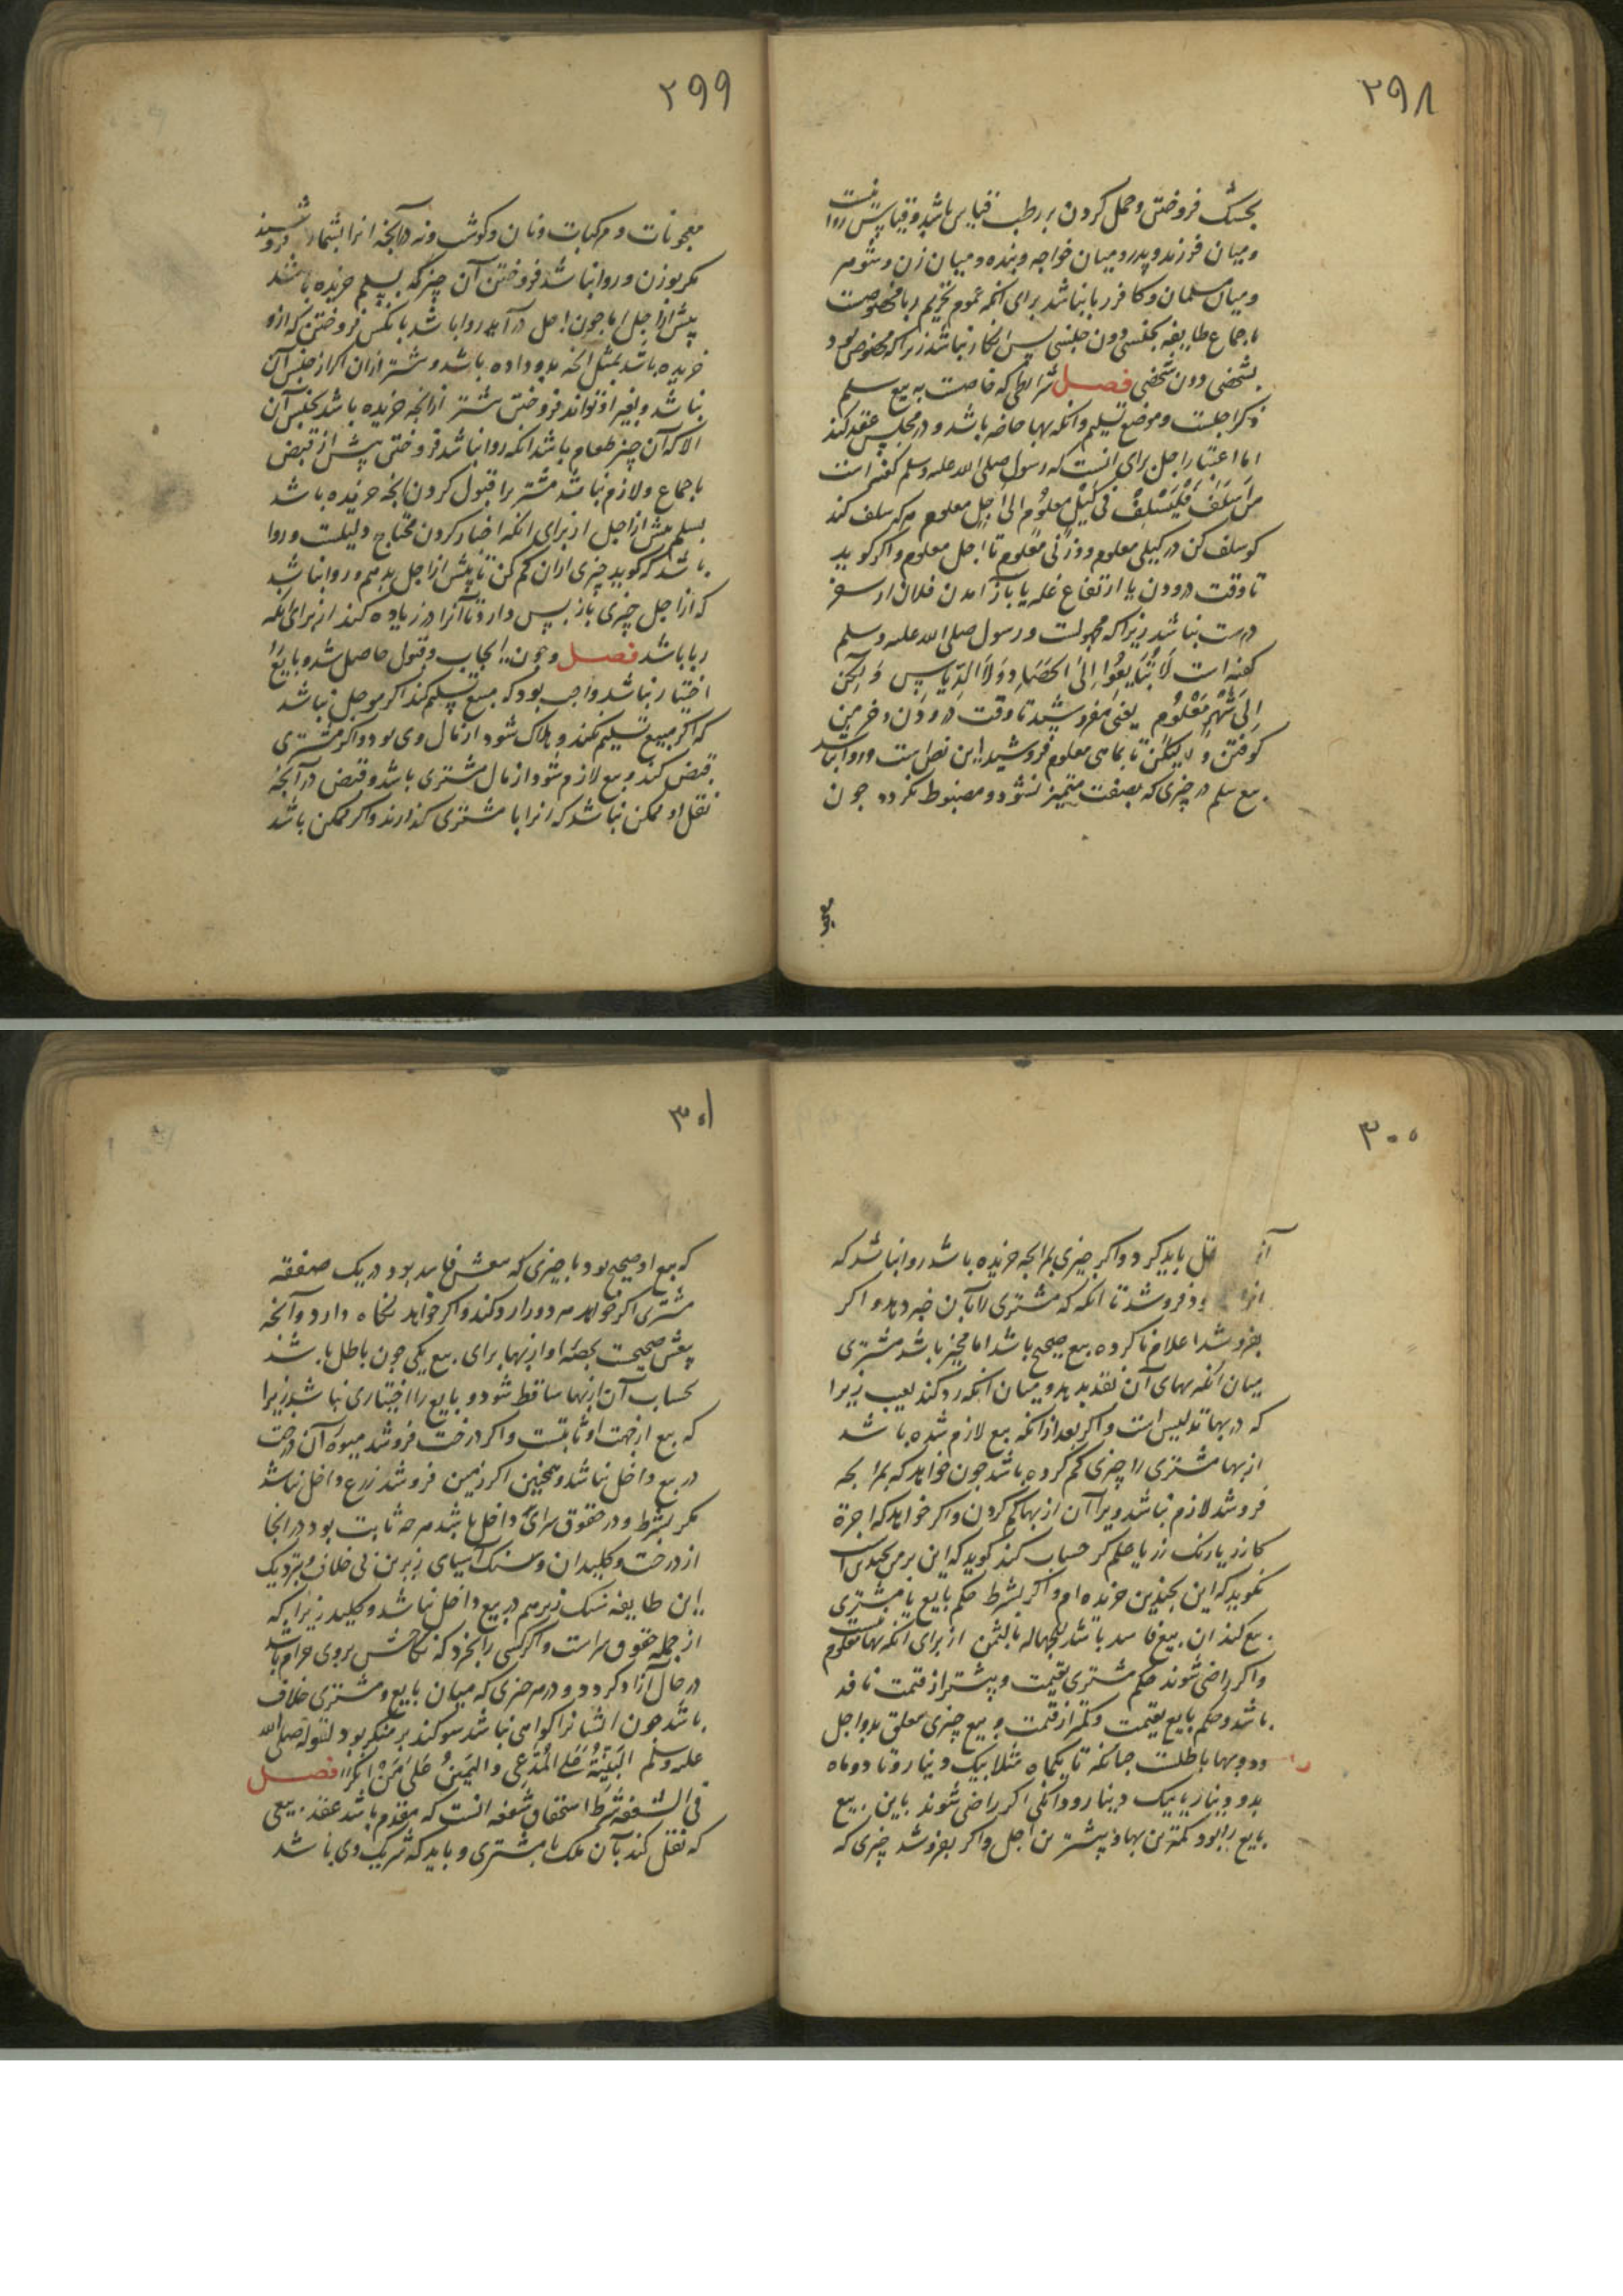 ۲۹۸
بخشک فروختن و حمل کردن بر رطب قیاس باشد و قیاس روا نیست
و میان فرزند و پدر و میان خواجه و بنده و میان زن و شوهر
و میان مسلمان و کافر ربا نباشد برای آنکه عموم تحریم ربا مخصوصست
باجماع طایفه بجنسی دون جنسی پس انکار نباشد زیرا که مخصوص بود
بشخصی دون شخصی فصل شرایطی که خاصست به بیع سلم
ذکر اجلست و موضع تسلیم و آنکه بها حاضر باشد و در مجلس عقد کند
اما اعتبار اجل برای آنست که رسول صلی الله علیه وسلم گفته است
مَن اَسلَفَ فَلْیُسْلِفْ فی کَیْلٍ معلوُم الی اَجلٍ معلوم هر که سلف کند
کو سلف کن در کیلی معلوم و وزنی معلوم تا اجل معلوم و اگر گوید
تا وقت درودن یا ارتفاع غله یا باز آمدن فلان از سفر
درست نباشد زیرا که مجهولست و رسول صلی الله علیه وسلم
گفته است لَا تُبَایِعُوا اِلیَ الحَصَادِ وَلَا الدِّیَاسِ وَلکِن
اِلی شَهْرٍ مَعْلوُم یعنی مفروشید تا وقت درودن و خرمن
کوفتن و لیکن تا بماهی معلوم فروشید این نص است و روا نباشد
بیع سلم در چیزی که بصفت متمیز نشود و مضبوط نگردد چون
معجو
۲۹۹
معجونات و مرکبات و نان و گوشت و نه در آنچه انرا بشمار فروشند
مگر بوزن و روا نباشد فروختن آن چیز که بسلم خریده باشند
پیش از اجل اما چون اجل در آید روا باشد با نکس فروختن که ازو
خریده باشد بمثل آنچه بدو داده باشد و بیشتر از آن اگر از جنس آن
نباشد و بغیر او تواند فروختن بیشتر از آنچه خریده باشد بجنس آن
الا که آن چیز طعام باشد آنکه روا نباشد فروختن پیش از قبض
باجماع و لازم نباشد مشتریرا قبول کردن آنچه خریده باشد
بسلم پیش از اجل از برای آنکه اجبار کردن محتاج دلیلست و روا
باشد که گوید چیزی از آن کم کن تا پیش از اجل بدهم و روا نباشد
که از اجل چیزی باز پس دارد تا آنرا در زیاده کند از برای آنکه
ربا باشد فصل و چون ایجاب و قبول حاصل شد و بایع را
اختیار نباشد واجب بود که مبیع تسلیم کند اگر موجل نباشد
که اگر مبیع تسلیم نکند و هلاک شود از مال وی بود و اگر مشتری
قبض کند و بیع لازم شود از مال مشتری باشد و قبض در آنچه
نقل او ممکن نباشد که انرا با مشتری گذارند و اگر ممکن باشد
۳۰۰
آنرا نقل باید کرد و اگر چیزی بمرابحه خریده باشد روا نباشد که
انرا فروشد تا آنکه که مشتری را بآن خبر دهد و اگر
بفروشد اعلام ناکرده بیع صحیح باشد اما مخیر باشد مشتری
میان آنکه بهای آن نقد بدهد و میان آنکه رد کند بعیب زیرا
که در بها تدلیس است و اگر بعد از آنکه بیع لازم شده باشد
از بها مشتری را چیزی کم کرده باشد چون خواهد که بمرابحه
فروشد لازم نباشد ویرا آن از بها کم کردن و اگر خواهد که اجرة
گازر یا رنگ رز یا حکم گر حساب کند گوید که این بر من بچندین است
نگوید که این بچندین خریده ام و اگر بشرط حکم بایع یا مشتری
بیع کند آن بیع فاسد باشد للجهالة بالثمن از برای آنکه بها معلوم نیست
و اگر راضی شوند حکم مشتری بقیمت و بیشتر از قیمت نافذ
باشد و حکم بایع بقیمت و کمتر از قیمت و بیع چیزی معلق بدو اجل
و دو بها باطلست چنانکه تا یکماه مثلا بیک دینار و تا دو ماه
بدو دینار یا بیک دینار و دانگی اگر راضی شوند باین بیع
بایع را بود کمترین بها و بیشترین اجل و اگر بفروشد چیزی که
۳۰۱
که بیع او صحیح بود با چیزی که بیعش فاسد بود در یک صفقه
مشتری اگر خواهد هر دو را رد کند و اگر خواهد نگاه دارد و آنچه
بیعش صحیحست بحصّه او از بها برای بیع یکی چون باطل باشد
بحساب آن از بها ساقط شود و بایع را اختیاری نباشد زیرا
که بیع از جهت او ثابتست و اگر درخت فروشد میوه آن درخت
در بیع داخل نباشد و همچنین اگر زمین فروشد زرع داخل نباشد
مگر بشرط و در حقوق سرای داخل باشد هر چه ثابت بود در آنجا
از درخت و کلیدان و سنگ آسیای زیرین بی خلاف و بنزدیک
این طایفه سنگ زبر هم در بیع داخل نباشد و کلید زیرا که
از جمله حقوق سراست و اگر کسی را بخرد که نکاحش بروی حرام باشد
در حال آزاد گردد و در هر چیزی که میان بایع و مشتری خلاف
باشد چون ایشانرا گواهی نباشد سوگند بر منکر بود لقوله صلی الله
علیه وسلم البَیِّنَةُ عَلَی المُدَّعِی والیَمینُ عَلیٰ مَنْ اَنکَرَ فصل
فی الشفعة شرط استحقاق شفعه آنست که مقدم باشد عقد بیعی
که نقل کند بآن ملک با مشتری و باید که شریک وی باشد